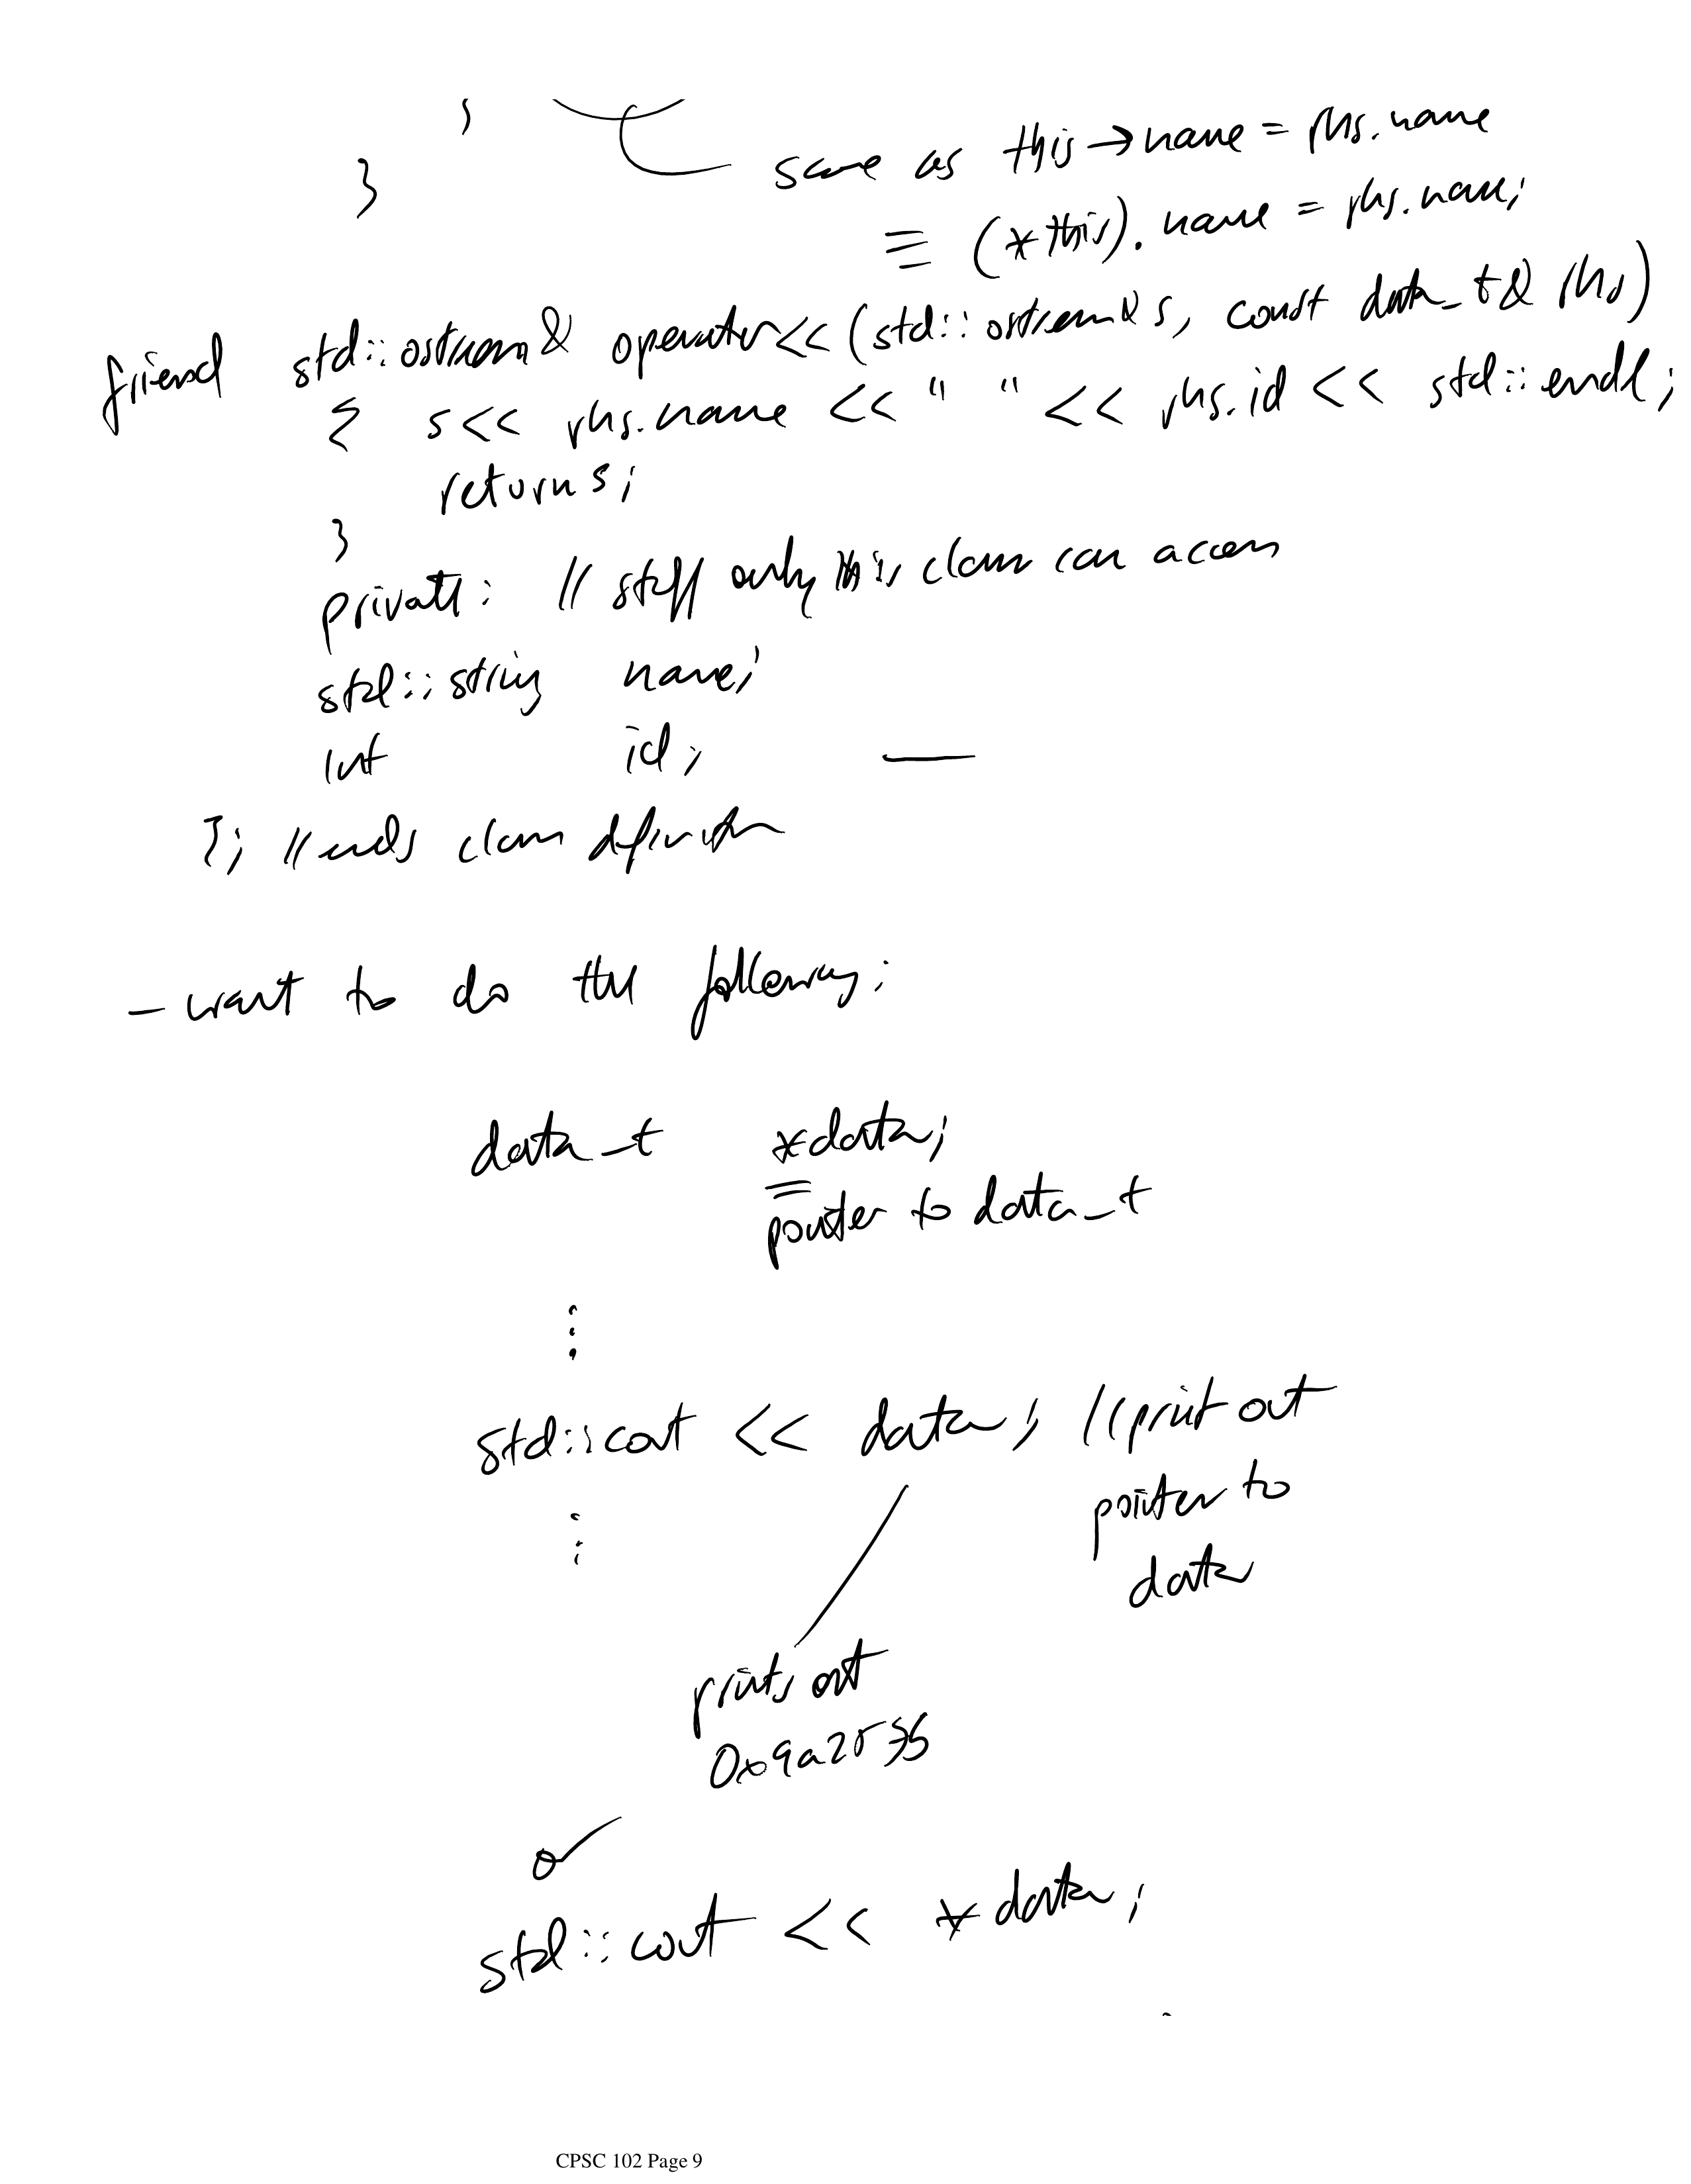 }
}
same as this→name = rhs.name
≡ (*this).name = rhs.name;
friend std::ostream& operator<<(std::ostream& s, const data_t& rhs)
{ s<< rhs.name <<" " << rhs.id << std::endl;
return s;
}
private: // stuff only this class can access
std::string name;
int id; —
}; //ends class definition
— want to do the following:
data_t *data;
pointer to data_t
⋮
std::cout << data; //print out
pointer to
data
⋮
prints out
or
std::cout << *data;
CPSC 102 Page 9